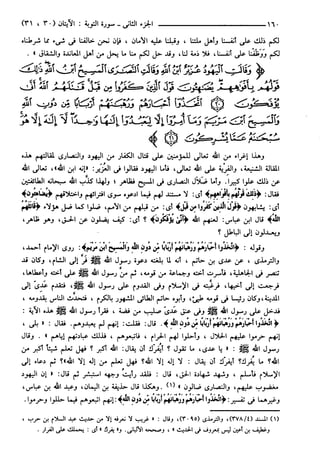 ١٦٠ الجزء الثاني ـ سورة التوبة : الآيتان ( ٣٠ ، ٣١ )
لكم ذلك على أنفسنا وأهل ملتنا ، وقبلنا عليه الأمان ، فإن نحن خالفنا في شيء مما شرطناه
لكم ووظفنا على أنفسنا، فلا ذمة لنا، وقد حل لكم منا ما يحل من أهل المعاندة والشقاق » .
﴿ وَقَالَتِ الْيَهُودُ عُزَيْرٌ ابْنُ اللَّهِ وَقَالَتِ النَّصَارَى الْمَسِيحُ ابْنُ اللَّهِ ذَلِكَ
قَوْلُهُم بِأَفْوَاهِهِمْ يُضَاهِئُونَ قَوْلَ الَّذِينَ كَفَرُوا مِن قَبْلُ قَاتَلَهُمُ اللَّهُ أَنَّى
يُؤْفَكُونَ ﴿٣٠﴾ اتَّخَذُوا أَحْبَارَهُمْ وَرُهْبَانَهُمْ أَرْبَابًا مِّن دُونِ اللَّهِ
وَالْمَسِيحَ ابْنَ مَرْيَمَ وَمَا أُمِرُوا إِلَّا لِيَعْبُدُوا إِلَهًا وَاحِدًا لَّا إِلَهَ إِلَّا هُوَ
سُبْحَانَهُ عَمَّا يُشْرِكُونَ ﴿٣١﴾ ﴾
وهذا إغراء من الله تعالى للمؤمنين على قتال الكفار من اليهود والنصارى لمقالتهم هذه
المقالة الشنيعة، والفرية على الله تعالى، فأما اليهود فقالوا في العزير: «إنه ابن الله»، تعالى الله
عن ذلك علوا كبيرا. وأما ضلال النصارى في المسيح فظاهر ؛ ولهذا كذب الله سبحانه الطائفتين
فقال: ﴿ذَلِكَ قَوْلُهُم بِأَفْوَاهِهِمْ﴾ أي: لا مستند لهم فيما ادعوه سوى افترائهم واختلاقهم ﴿يُضَاهِئُونَ﴾
أي: يشابهون ﴿قَوْلَ الَّذِينَ كَفَرُوا مِن قَبْلُ﴾ أي: من قبلهم من الأمم، ضلوا كما ضل هؤلاء ﴿قَاتَلَهُمُ
اللَّهُ﴾ قال ابن عباس: لعنهم الله ﴿أَنَّى يُؤْفَكُونَ﴾ ؟ أي: كيف يضلون عن الحق، وهو ظاهر،
ويعدلون إلى الباطل ؟
وقوله : ﴿اتَّخَذُوا أَحْبَارَهُمْ وَرُهْبَانَهُمْ أَرْبَابًا مِّن دُونِ اللَّهِ وَالْمَسِيحَ ابْنَ مَرْيَمَ﴾: روى الإمام أحمد،
والترمذي ، عن عدي بن حاتم ، أنه لما بلغته دعوة رسول الله ﷺ فر إلى الشام، وكان قد
تنصر في الجاهلية، فأسرت أخته وجماعة من قومه، ثم من رسول الله ﷺ على أخته وأعطاها،
فرجعت إلى أخيها، فرغبته في الإسلام وفي القدوم على رسول الله ﷺ ، فتقدم عدي إلى
المدينة، وكان رئيسا في قومه طيئ، وأبوه حاتم الطائي المشهور بالكرم ، فتحدث الناس بقدومه ،
فدخل على رسول الله ﷺ وفي عنق عدي صليب من فضة ، فقرأ رسول الله ﷺ هذه الآية :
﴿ اتَّخَذُوا أَحْبَارَهُمْ وَرُهْبَانَهُمْ أَرْبَابًا مِّن دُونِ اللَّهِ﴾. قال: فقلت: إنهم لم يعبدوهم. فقال: « بلى ،
إنهم حرموا عليهم الحلال ، وأحلوا لهم الحرام ، فاتبعوهم ، فذلك عبادتهم إياهم » . وقال
رسول الله ﷺ : « يا عدي، ما تقول ؟ أيفرك أن يقال: الله أكبر ؟ فهل تعلم شيئا أكبر من
الله ؟ ما يفرك ؟ أيفرك أن يقال : لا إله إلا الله ؟ فهل تعلم من إله إلا الله » ؟ ثم دعاه إلى
الإسلام فأسلم ، وشهد شهادة الحق، قال : فلقد رأيت وجهه استبشر ثم قال : « إن اليهود
مغضوب عليهم، والنصارى ضالون » (١) . وهكذا قال حذيفة بن اليمان، وعبد الله بن عباس،
وغيرهما في تفسير: ﴿اتَّخَذُوا أَحْبَارَهُمْ وَرُهْبَانَهُمْ أَرْبَابًا مِّن دُونِ اللَّهِ﴾: إنهم اتبعوهم فيما حللوا وحرموا.
(١) المسند (٣٧٨/٤)، والترمذي (٣٠٩٥)، وقال : « غريب لا نعرفه إلا من حديث عبد السلام بن حرب ،
وغطيف بن أعين ليس بمعروف في الحديث » ، وصححه الألباني . و« يفرك » أي : يحملك على الفرار .